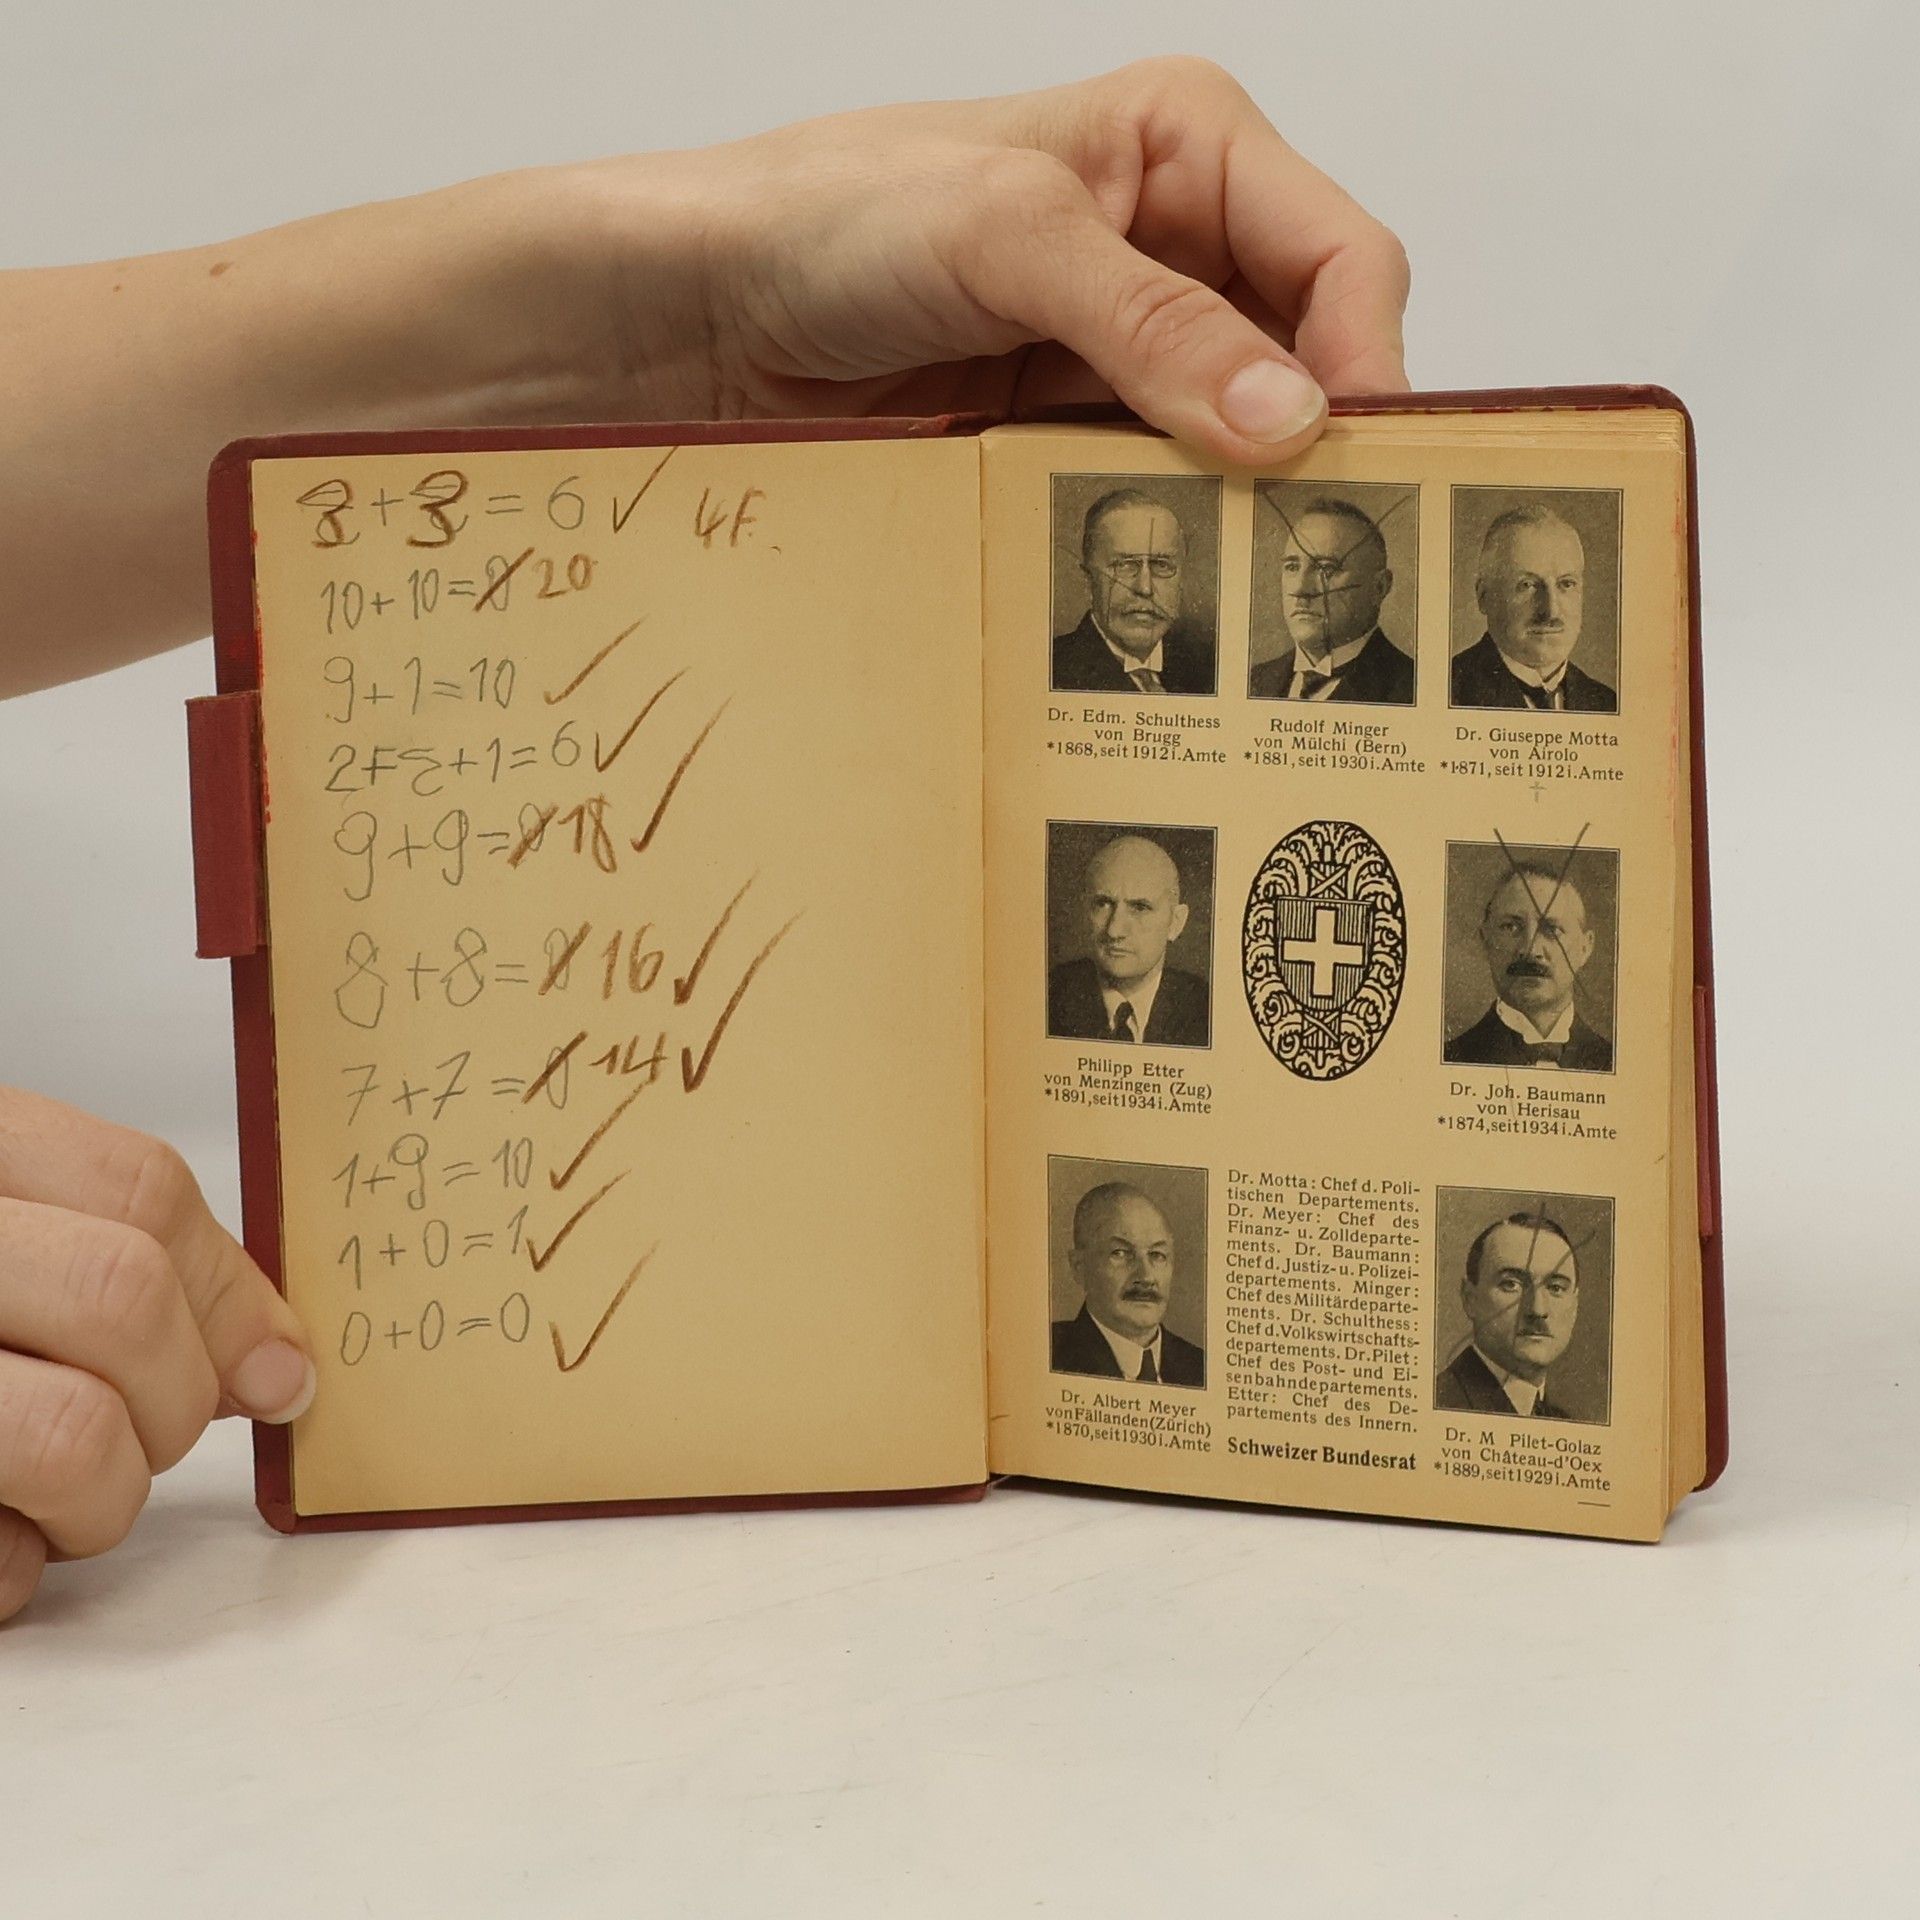 3+3=6 ✓ 4F.
10+10=0 20
9+1=10 ✓
2+3+1=6 ✓
9+9=0 18 ✓
8+8=0 16 ✓
7+7=0 14 ✓
1+9=10 ✓
1+0=1 ✓
0+0=0 ✓
Dr. Edm. Schulthess
von Brugg
*1868, seit 1912 i. Amte
Rudolf Minger
von Mülchi (Bern)
*1881, seit 1930 i. Amte
Dr. Giuseppe Motta
von Airolo
*1871, seit 1912 i. Amte
†
Philipp Etter
von Menzingen (Zug)
*1891, seit 1934 i. Amte
Dr. Joh. Baumann
von Herisau
*1874, seit 1934 i. Amte
Dr. Albert Meyer
von Fällanden (Zürich)
*1870, seit 1930 i. Amte
Dr. Motta: Chef d. Poli-
tischen Departements.
Dr. Meyer: Chef des
Finanz- u. Zolldeparte-
ments. Dr. Baumann:
Chef d. Justiz- u. Polizei-
departements. Minger:
Chef des Militärdeparte-
ments. Dr. Schulthess:
Chef d. Volkswirtschafts-
departements. Dr. Pilet:
Chef des Post- und Ei-
senbahndepartements.
Etter: Chef des De-
partements des Innern.
Schweizer Bundesrat
Dr. M Pilet-Golaz
von Château-d'Oex
*1889, seit 1929 i. Amte